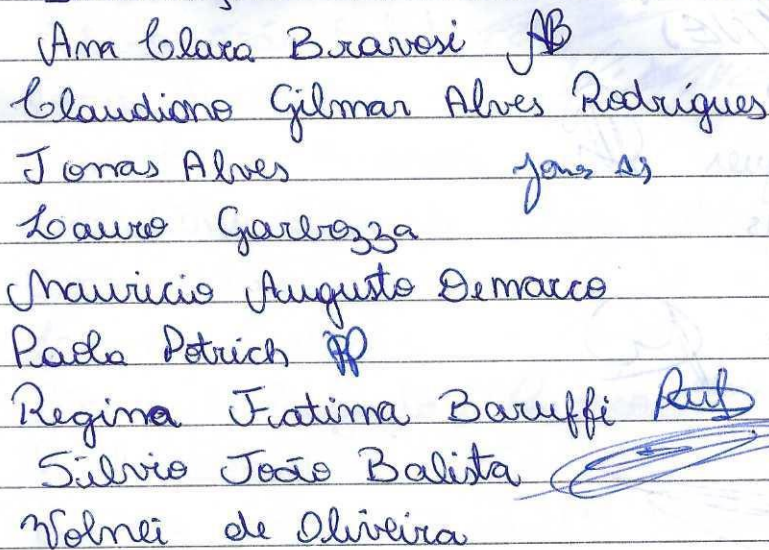 Ana Clara Bravosi AB
Claudiano Gilmar Alves Rodrigues
Jonas Alves
Lauro Garbozza
Mauricio Augusto Demarco
Paola Potrich PP
Regina Fratima Baruffi
Silvio João Balista
Volnei de Oliveira